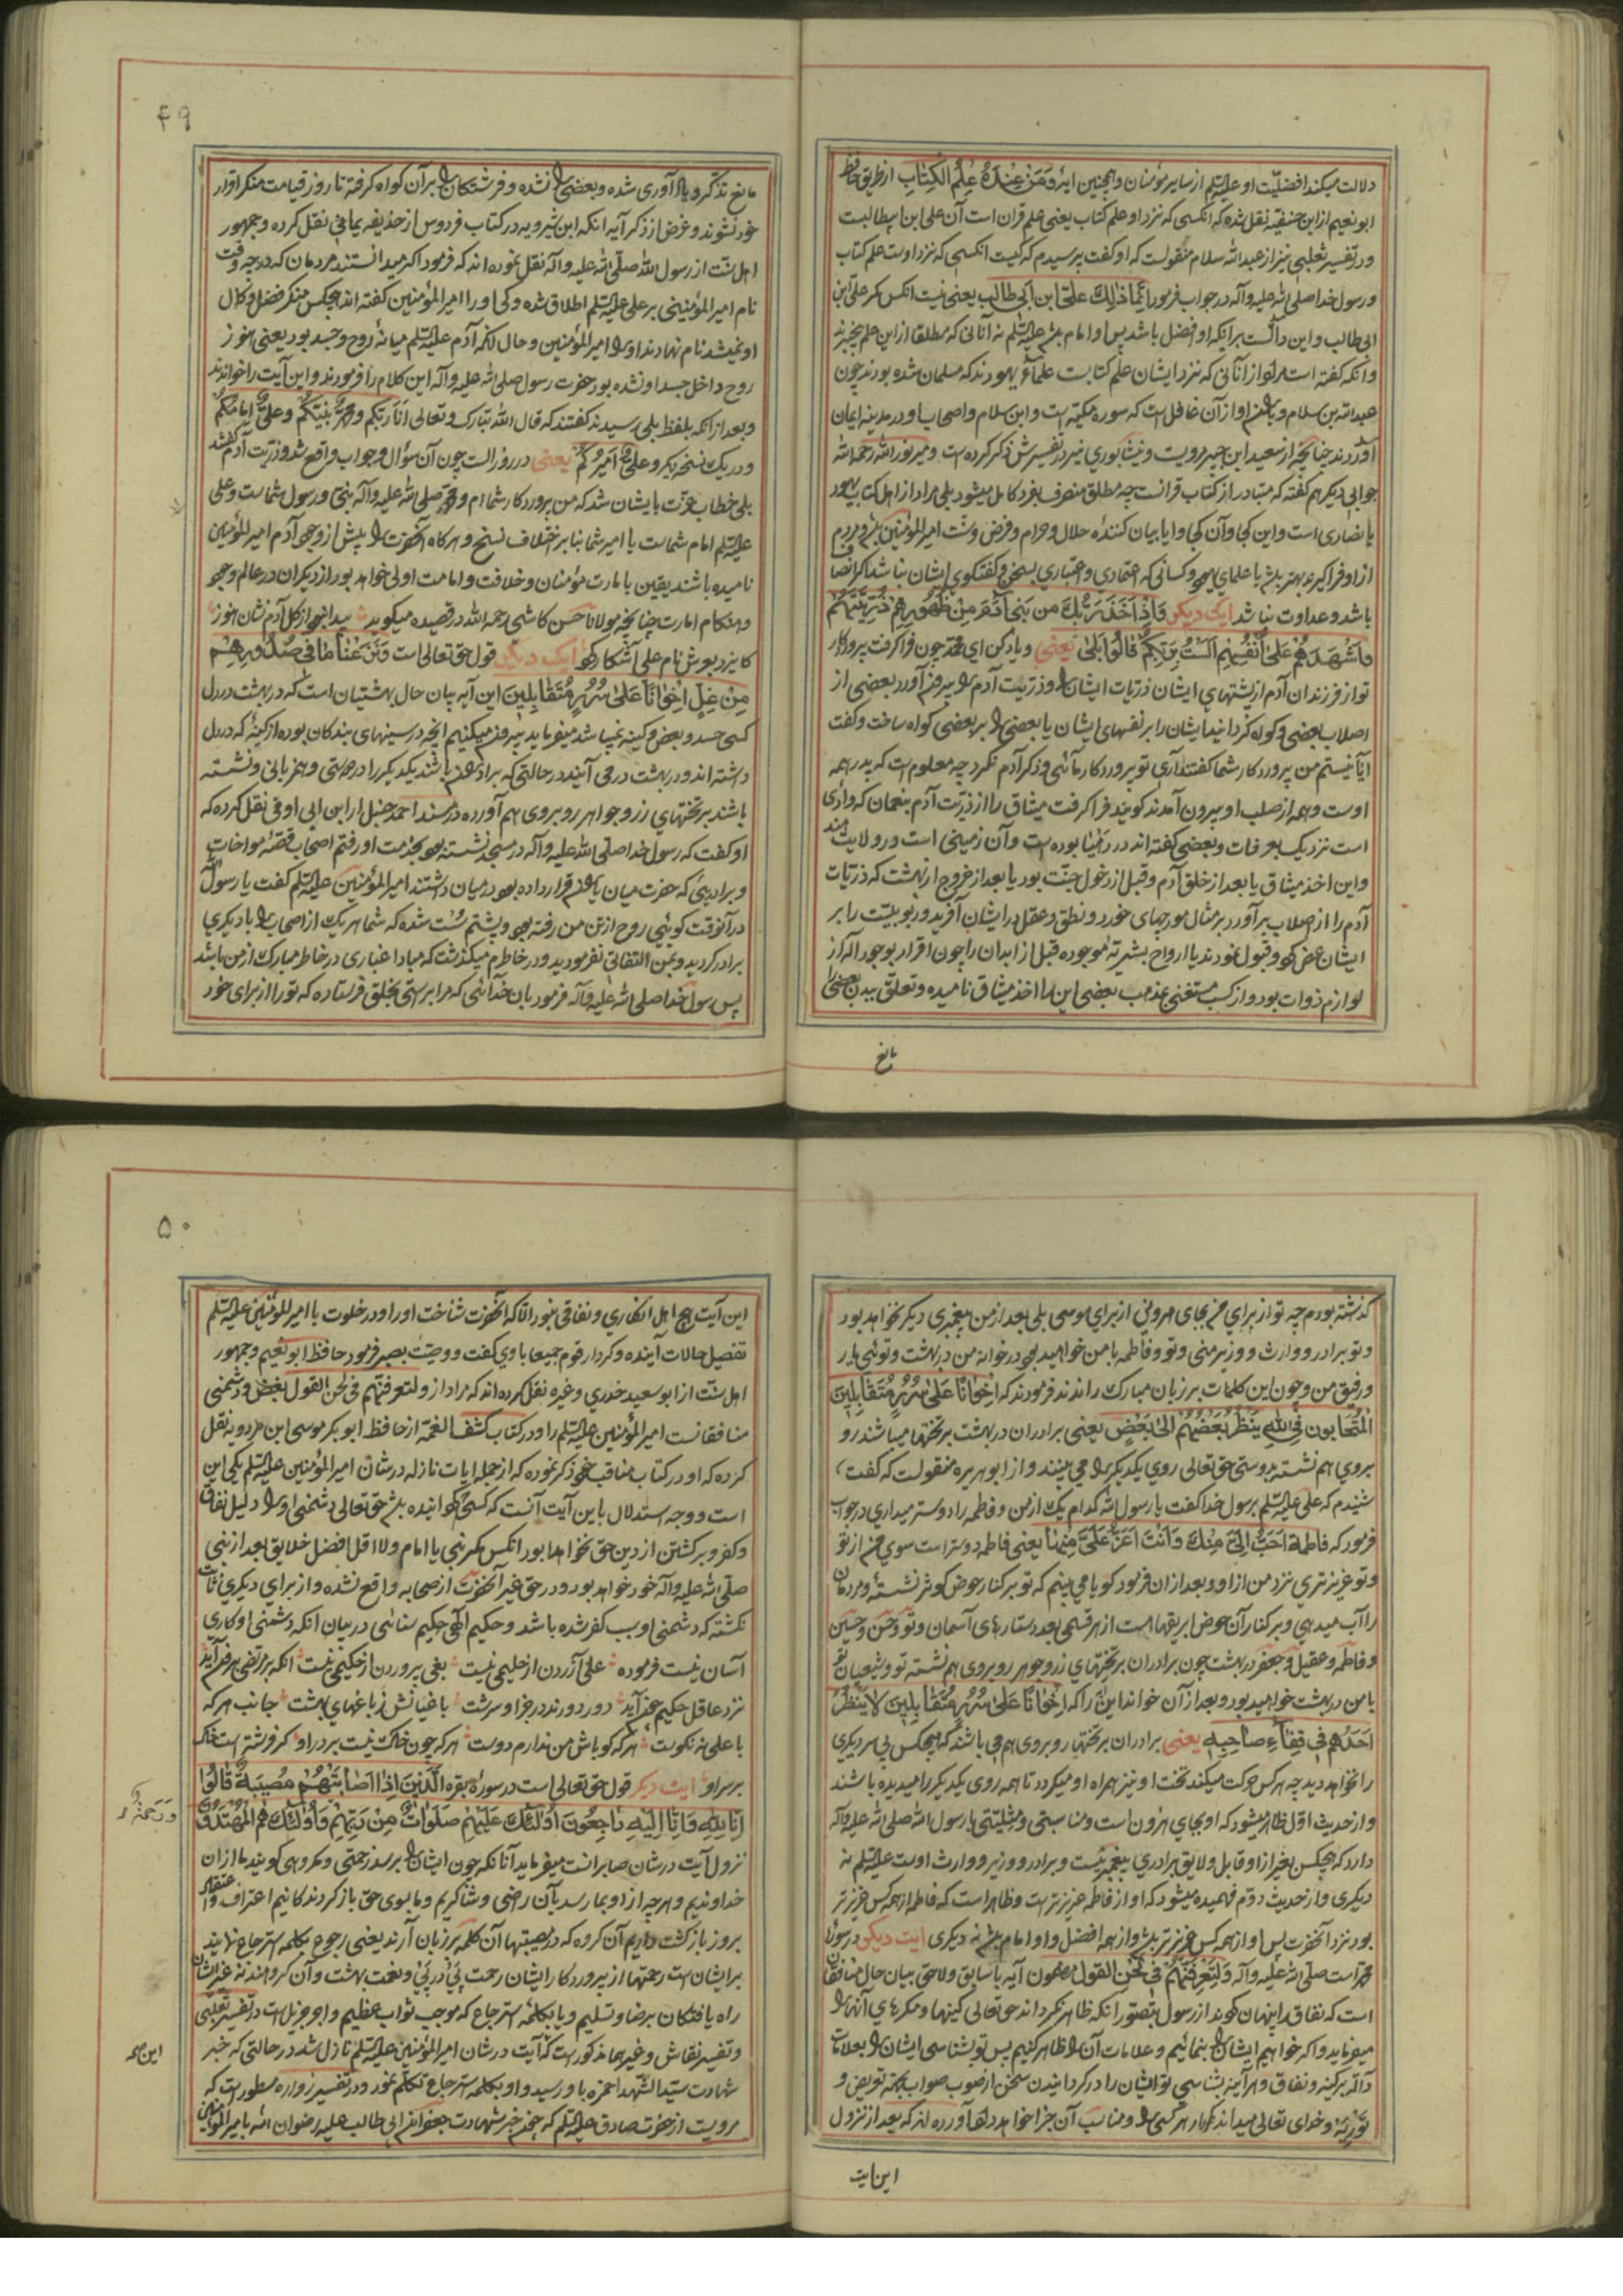 دلالت میکند افضلیّت او علیه السلم از سایر مؤمنان و همچنین ایهٔ وَمَنْ عِنْدَهُ عِلْمُ الْکِتٰابِ از طریق حافظ
ابو نعیم از ابن حنفیّه نقل شده که انکسی که نزد او علم کتاب یعنی علم قران است آن علی ابن ابیطالبت
و در تفسیر ثعلبی نیز از عبد الله سلام منقولت که او کفت پرسیدم که کیست انکسی که نزد اوست علم کتاب
و رسول خدا صلی الله علیه وآله در جواب فرمود اِنَّمٰا ذٰلِكَ عَلیّ ابن اَبی طالب یعنی نیست انکس مکر علی ابن
ابی طالب و این دالّست بر اینکه او افضل باشد پس او امام باشد علیه السلم نه آنانی که مطلقا از این علم بیخبرند
و آنکه کفته است مراد از آنانی که نزد ایشان علم کتابت علمآء یهودند که مسلمان شده بودند چون
عبد الله بن سلام و یا غیر او از آن غافل است که سوره مکیّه است و ابن سلام و اصحاب او در مدینه ایمان
آوردند چنانچه از سعید ابن جبیر مرویت و نیشابوری نیز در تفسیرش ذکر کرده است و میر نور الله رحمه الله
جوابی دیکر هم کفته که متبادر از کتاب قرانست چه مطلق منصرف بفرد کامل میشود بلی مراد از اهل کتاب یهود
یا نصاری است و این کجا و آن کجا و ایا بیان کنندهٔ حلال و حرام و فرض و سنّت امیر المؤمنین باشد و مردم
از او فراکیرند بهتر باشد یا علمای یهود و کسانی که اعتمادی و اعتباری بسخن و کفتکوی ایشان نباشد اکر انصاف
باشد و عداوت نباشد ایت دیکر وَاِذْ اَخَذَ رَبُّكَ مِنْ بَنی اٰدَمَ مِنْ ظُهُورِهِمْ ذُرِّیَّتَهُمْ
وَاَشْهَدَهُمْ عَلیٰ اَنْفُسِهِمْ اَلَسْتُ بِرَبِّکُمْ قٰالُوا بَلیٰ یعنی و یاد کن ای محمد چون فرا کرفت پروردکار
تو از فرزندان آدم از پشتهای ایشان ذریّات ایشان را و ذرّیت آدم را بیرون آورد بعضی از
اصلاب بعضی و کواه کردانید ایشان را بر نفسهای ایشان یا بعضی را بر بعضی کواه ساخت و کفت
آیا نیستم من پروردکار شما کفتند آری تو پروردکار مائی و ذکر آدم نکرد چه معلوم است که پدر همه
اوست و همه از صلب او بیرون آمدند کویند فرا کرفت میثاق را از ذریّت آدم بنعمان که وادی
است نزدیک بعرفات و بعضی کفته اند در دَهْنا بوده است و آن زمینی است در ولایت هند
و این اخذ میثاق یا بعد از خلق آدم و قبل از دخول جنّت بود یا بعد از خروج از بهشت که ذریّات
آدم را از اصلاب بر آورد بر مثال مورچهای خورد و نطق و عقل در ایشان آفرید و ربوبیّت را بر
ایشان عرض کرد و قبول نمودند یا ارواح بشریّه موجوده قبل از ابدان را چون اقرار بوجود اله از
لوازم ذوات بود و از کسب مستغنی بمذهب بعضی این را اخذ میثاق نامیده و تعلّق ببدن بعضی را
مانع
۴۹
مانع تذکّر و یاد آوری شده و بعضی را نشده و فرشتکان را بر آن کواه کرفته تا روز قیامت منکر اقرار
خود نشوند و غرض از ذکر آیه انکه ابن شیرویه در کتاب فردوس از حذیفه یمانی نقل کرده و جمهور
اهل سنّت از رسول الله صلّی الله علیه وآله نقل نموده اند که فرمود اکر میدانستند مردمان که در چه وقت
نام امیر المؤمنینی بر علی علیه السلم اطلاق شده و کی او را امیر المؤمنین کفته اند هیچکس منکر فضل و کمال
او نمیشد نام نهادند او را امیر المؤمنین و حال انکه آدم علیه السلم میانهٔ روح و جسد بود یعنی هنوز
روح داخل جسد او نشده بود حضرت رسول صلی الله علیه وآله این کلام را فرمودند و این آیت را خواندند
و بعد از انکه بلفظ بلی رسیدند کفتند که قال الله تبارک و تعالی اَنَا رَبُّکُم ومحمّد نبیّکم وعلیّ امامکم
و در یک نسخه دیکر وعلیّ امیرکم یعنی در روز الست چون آن سؤال و جواب واقع شد و ذریّت آدم کفتند
بلی خطاب عزّت بایشان شد که من پروردکار شما ام و محمد صلی الله علیه وآله نبیّ و رسول شماست و علی
علیه السلم امام شماست یا امیر شما بنا بر اختلاف نسخ و هر کاه آنحضرت را پیش از وجود آدم امیر المؤمنین
نامیده باشند یقین بامارت مؤمنان و خلافت و امامت اولی خواهد بود از دیکران در عالم وجود
و هنکام امارت چنانچه مولانا حسن کاشی رحمه الله در قصیده میکوید بیدا نبود از کل آدم نشان هنوز
کایزد بعرش نام علی آشکار کرد ایت دیکر قول حق تعالی است وَنَزَعْنٰا مٰا فی صُدُورِهِمْ
مِنْ غِلٍّ اِخْوٰانًا عَلیٰ سُرُرٍ مُتَقٰابِلینَ این آیه بیان حال بهشتیان است که در بهشت در دل
کسی حسد و بغض و کینه نمیباشد میفرماید بیرون میکنیم انچه در سینهای بندکان بوده از کینهٔ که در دل
داشته اند و در بهشت در می آیند در حالتی که برادران باشند یکدیکر را در دوستی و مهربانی و نشسته
باشند بر تختهای زر و جواهر روبروی هم آورده در مسند احمد حنبل از ابن ابی اوفی نقل کرده که
او کفت که رسول خدا صلّی الله علیه وآله در مسجد نشسته بود بخدمت او رفتم اصحاب قصّهٔ مواخات
و برادریی که حضرت میان یاران قرار داده بود در میان داشتند امیر المؤمنین علیه السلم کفت یا رسول الله
در آنوقت کوئیی روح از تن من رفته بود و پشتم سُست شده که شما هر یک از اصحاب را با دیکری
برادر کردید و بمن التفاتی نفرمودید و در خاطرم میکذشت که مبادا غباری در خاطر مبارک از من باشد
پس رسول خدا صلی الله علیه وآله فرمود بان خدائی که مرا براستی بخلق فرستاده که تو را از برای خود
کذاشته بودم چه تو از برای من بجای هرونی از برای موسی بلی بعد از من پیغمبری دیکر نخواهد بود
و تو برادر و وارث و وزیر منی و تو و فاطمه با من خواهید بود در خانه من در بهشت و توئی یار
و رفیق من و چون این کلمات بر زبان مبارک راندند فرمودند که اِخْوٰانًا عَلیٰ سُرُرٍ مُتَقٰابِلینَ
اَلْمُتَحٰابّونَ فِی اللهِ یَنْظُرُ بَعْضُهُمْ اِلیٰ بَعْضٍ یعنی برادران در بهشت بر تختها میباشند رو
بروی هم نشسته بدوستی حق تعالی روی یکدیکر را می بینند و از ابو هریره منقولت که کفت
شنیدم که علی علیه السلم برسول خدا کفت یا رسول الله کدام یک از من و فاطمه را دوستر میداری در جواب
فرمود که فاطِمَة اَحَبُّ اِلَیَّ مِنْكَ وَاَنْتَ اَعَزُّ عَلَیَّ مِنْهٰا یعنی فاطمه دوستر است سوی من از تو
و تو عزیز تری نزد من از او و بعد از ان فرمود کویا می بینم که تو بر کنار حوض کوثر نشستهٔ و مردمان
را آب میدهی و بر کنار آن حوض ابریقها است از هر قسمی بعدد ستارهای آسمان و تو و حسن و حسین
و فاطمه و عقیل و جعفر در بهشت چون برادران بر تختهای زر و جوهر روبروی هم نشسته تو و شیعیان تو
با من در بهشت خواهید بود و بعد از آن خواند این را که اِخْوٰانًا عَلیٰ سُرُرٍ مُتَقٰابِلینَ لاٰ یَنْظُرُ
اَحَدُهُمْ فی قِفٰآءِ صٰاحِبِهِ یعنی برادران بر تختها روبروی هم می باشند که هیچکس پی سر دیکری
را نخواهد دید چه هر کس حرکت میکند تخت او نیز همراه او میکردد تا همه روی یکدیکر را میدیده باشند
و از حدیث اوّل ظاهر میشود که او بجای هرون است و مناسبتی و مثلیّتی با رسول الله صلی الله علیه وآله
دارد که هیچکس بغیر از او قابل و لایق برادری پیغمبر نیست و برادر و وزیر و وارث اوست علیه السلم نه
دیکری و از حدیث دوّم فهمیده میشود که او از فاطمه عزیز تر است و ظاهر است که فاطمه از همه کس عزیز تر
بود نزد آنحضرت پس او از همه کس عزیز تر باشد و از همه افضل و او امام باشد نه دیکری ایت دیکر در سورهٔ
محمد است صلّی الله علیه وآله وَلَتَعْرِفَنَّهُمْ فی لَحْنِ القول مضمون آیه با سابق و لاحق بیان حال منافقان
است که نفاق را پنهان کردند از رسول بتصوّر انکه ظاهر نکرداند حق تعالی کینها و مکرهای آنها را
میفرماید و اکر خواهیم ایشان را بنمائیم و علامات آن را ظاهر کنیم پس تو بشناسی ایشان را بعلامات
دالّه بر کینه و نفاق و هر آینه بشناسی تو ایشان را در کردانیدن سخن از صوب صواب بجهة تعریض و
توریة و خدای تعالی میداند کردار هر کسی را و مناسب آن جزا خواهد داد آورده اند که بعد از نزول
این ایت
۵۰
این آیت هیچ اهل انکاری و نفاقی نبود الّا که آنحضرت شناخت او را و در خلوت با امیر المؤمنین علیه السلم
تفصیل حالات آینده و کردار قوم جمیعا با وی کفت و وصیّت بصبر فرمود حافظ ابو نعیم و جمهور
اهل سنّت از ابو سعید خدری و غیره نقل کرده اند که مراد از ولتعرفنّهم فی لحن القول بغض و دشمنی
منافقانست امیر المؤمنین علیه السلم را و در کتاب کشف الغمّه از حافظ ابو بکر موسی ابن مردویه نقل
کرده که او در کتاب مناقب خود ذکر نموده که از جمله ایات نازله در شان امیر المؤمنین علیه السلم یکی این
است و وجه استدلال باین آیت آنست که کسی که کردانیده باشد حق تعالی دشمنی او را دلیل نفاق
و کفر و برکشتن از دین حق نخواهد بود انکس مکر نبی یا امام و لا اقل افضل خلایق بعد از نبی
صلّی الله علیه وآله خود خواهد بود و در حق غیر آنحضرت از صحابه واقع نشده و از برای دیکری ثابت
نکشته که دشمنی او سبب کفر شده باشد و حکیم الهی حکیم سنائی در بیان انکه دشمنی او کاری
آسان نیست فرموده علی آزردن از حلیمی نیست بغی پروردن از حکیمی نیست انکه بر مرتضی برون آید
نزد عاقل حکیم چون آید دور دورند در جزا و سرشت با غیانش ز باغهای بهشت جانب هر که
با علی نه نکوست هر که کو باش من ندارم دوست هر که چون خاک نیست بر در او کر فرشته است خاک
بر سر او ایت دیکر قول حق تعالی است در سورهٔ بقره اَلَّذینَ اِذٰا اَصٰابَتْهُمْ مُصیبَةٌ قٰالُوا
اِنّٰا لِلّٰهِ وَاِنّٰا اِلَیْهِ رٰاجِعُونَ اُولٰئِكَ عَلَیْهِمْ صَلَوٰاتٌ مِنْ رَبِّهِمْ وَاُولٰئِكَ هُمُ الْمُهْتَدُونَ
ورحمة
نزول آیت در شان صابرانست میفرماید آنانکه چون ایشان را برسد زحمتی و مکروهی کویند ما از ان
خداوندیم و هر چه از او بما رسد بآن راضی و شاکریم و ما بسوی حق باز کردندکانیم اعتراف و اعتقاد
بروز بازکشت داریم آن کروه که در مصیبتها آن کلمه بر زبان آرند یعنی رجوع بکلمه استرجاع نمایند
بر ایشان است رحمتها از پروردکار ایشان رحمت پی در پی و نعمت بهشت و آن کروهند نه غیر ایشان
راه یافتکان برضا و تسلیم و یا بکلمهٔ استرجاع که موجب ثواب عظیم و اجر جزیل است در تفسیر ثعلبی
و تفسیر نقاش و غیر هما مذکور است که آیت در شان امیر المؤمنین علیه السلم نازل شد در حالتی که خبر
این صح
شهادت سیّد الشّهدا حمزه باو رسید و او بکلمه استرجاع تکلّم نمود و در تفسیر زواره مسطور است که
مرویت از حضرت صادق علیه السلم که چون خبر شهادت جعفر ابن ابی طالب علیه رضوان الله بامیر المؤمنین